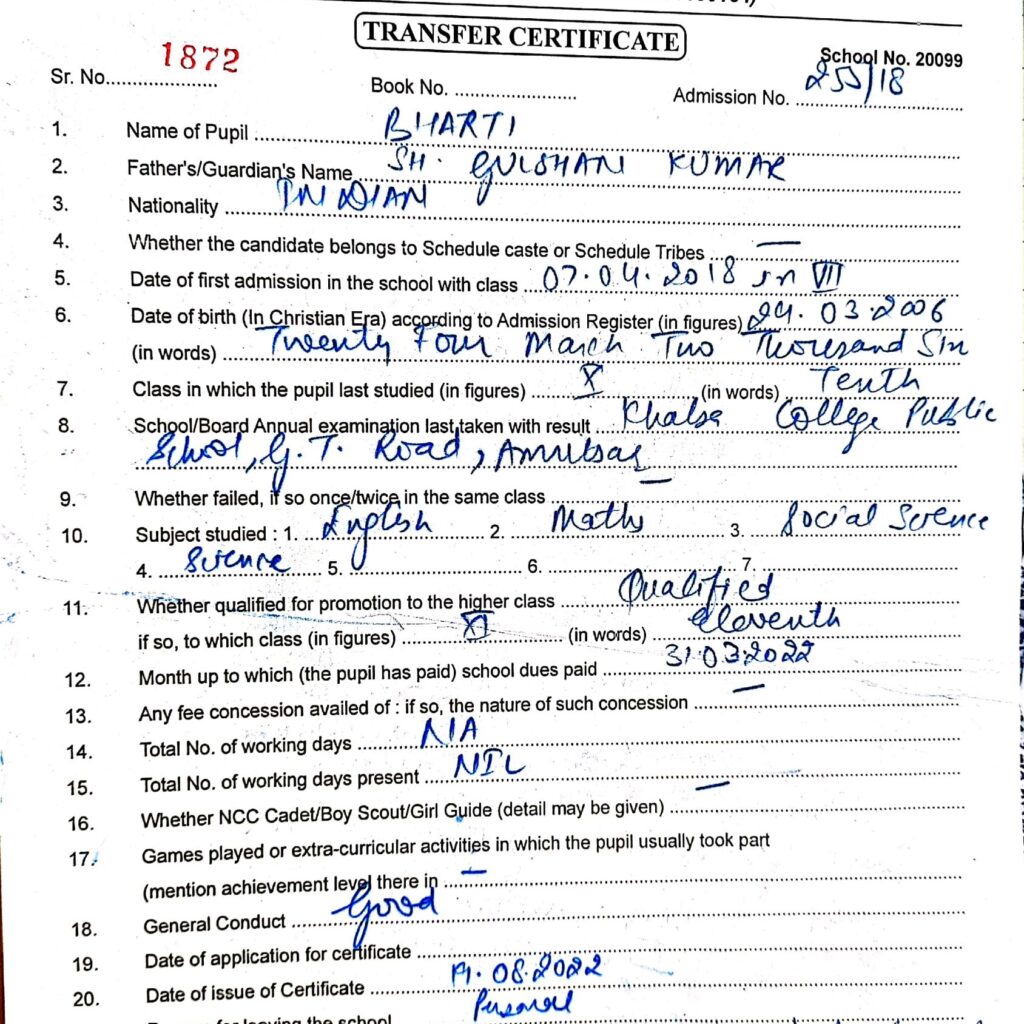 TRANSFER CERTIFICATE
School No. 20099
Sr. No. 1872
Book No. ........ Admission No. 255/18
1. Name of Pupil BHARTI
2. Father's/Guardian's Name SH. GULSHAN KUMAR
3. Nationality INDIAN
4. Whether the candidate belongs to Schedule caste or Schedule Tribes —
5. Date of first admission in the school with class 07.04.2018 in VII
6. Date of birth (In Christian Era) according to Admission Register (in figures) 24.03.2006
(in words) Twenty Four March Two Thousand Six
7. Class in which the pupil last studied (in figures) X (in words) Tenth
8. School/Board Annual examination last taken with result Khalsa College Public
School, G.T. Road, Amritsar
9. Whether failed, if so once/twice in the same class —
10. Subject studied : 1. English 2. Maths 3. Social Science
4. Science 5. ........ 6. ........ 7. ........
11. Whether qualified for promotion to the higher class Qualified
if so, to which class (in figures) XI (in words) Eleventh
12. Month up to which (the pupil has paid) school dues paid 31.03.2022
13. Any fee concession availed of : if so, the nature of such concession —
14. Total No. of working days N/A
15. Total No. of working days present NIL
16. Whether NCC Cadet/Boy Scout/Girl Guide (detail may be given) —
17. Games played or extra-curricular activities in which the pupil usually took part
(mention achievement level there in —
18. General Conduct Good
19. Date of application for certificate
20. Date of issue of Certificate 08.2022
for leaving the school Personal